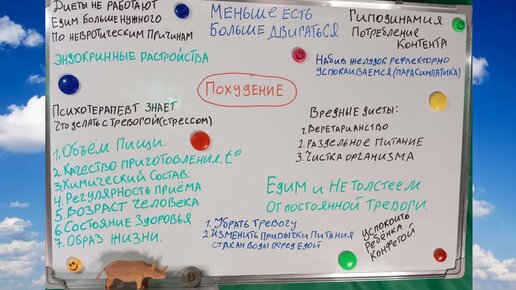 Диеты не работают
Едим больше нужного
По невротическим причинам
Эндокринные растройства
Меньше есть
Больше двигаться
Гиподинамия
Потребление
контента
Набив желудок рефлекторно
успокаиваемся (парасимпатика)
Похудение
Психотерапевт знает
Что делать с тревогой (стрессом)
1. Объём пищи.
2. Качество приготовления. t°
3. Химический состав.
4. Регулярность приёма
5. Возраст человека
6. Состояние здоровья
7. Образ жизни.
Вредные диеты:
1. Веретарианство
2. Раздельное питание
3. Чистка организма
Едим и не толстеем
От постоянной тревори.
1. Убрать тревогу
2. Изменить привычки питания
стакан воды перед едой
Успокоить
ребёнка
конфетой